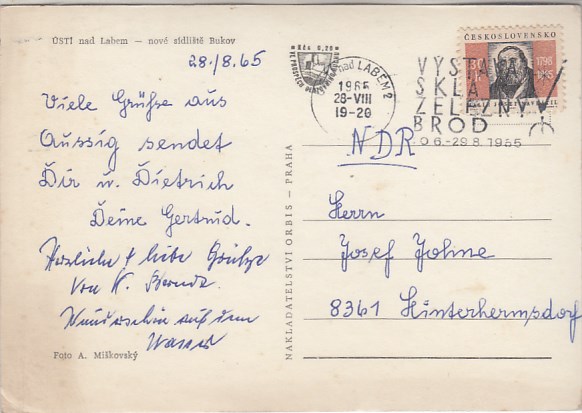 ÚSTÍ nad Labem — nové sídliště Bukov
28./8.65
Viele Grüße aus
Aussig sendet
Dir u. Dietrich
Deine Gertrud.
Herzliche + liebe Grüße
von
auf dem
Foto A. Miškovský
NAKLADATELSTVÍ ORBIS — PRAHA
Kčs 0,20
nad LABEM 2
1965
28-VIII
19-20
VÝSTAVA
SKLA
ŽELEZNÝ
BROD
6.-29.8.1965
ČESKOSLOVENSKO
1798
NDR
Herrn
Josef Johne
8361 Hinterhermsdorf